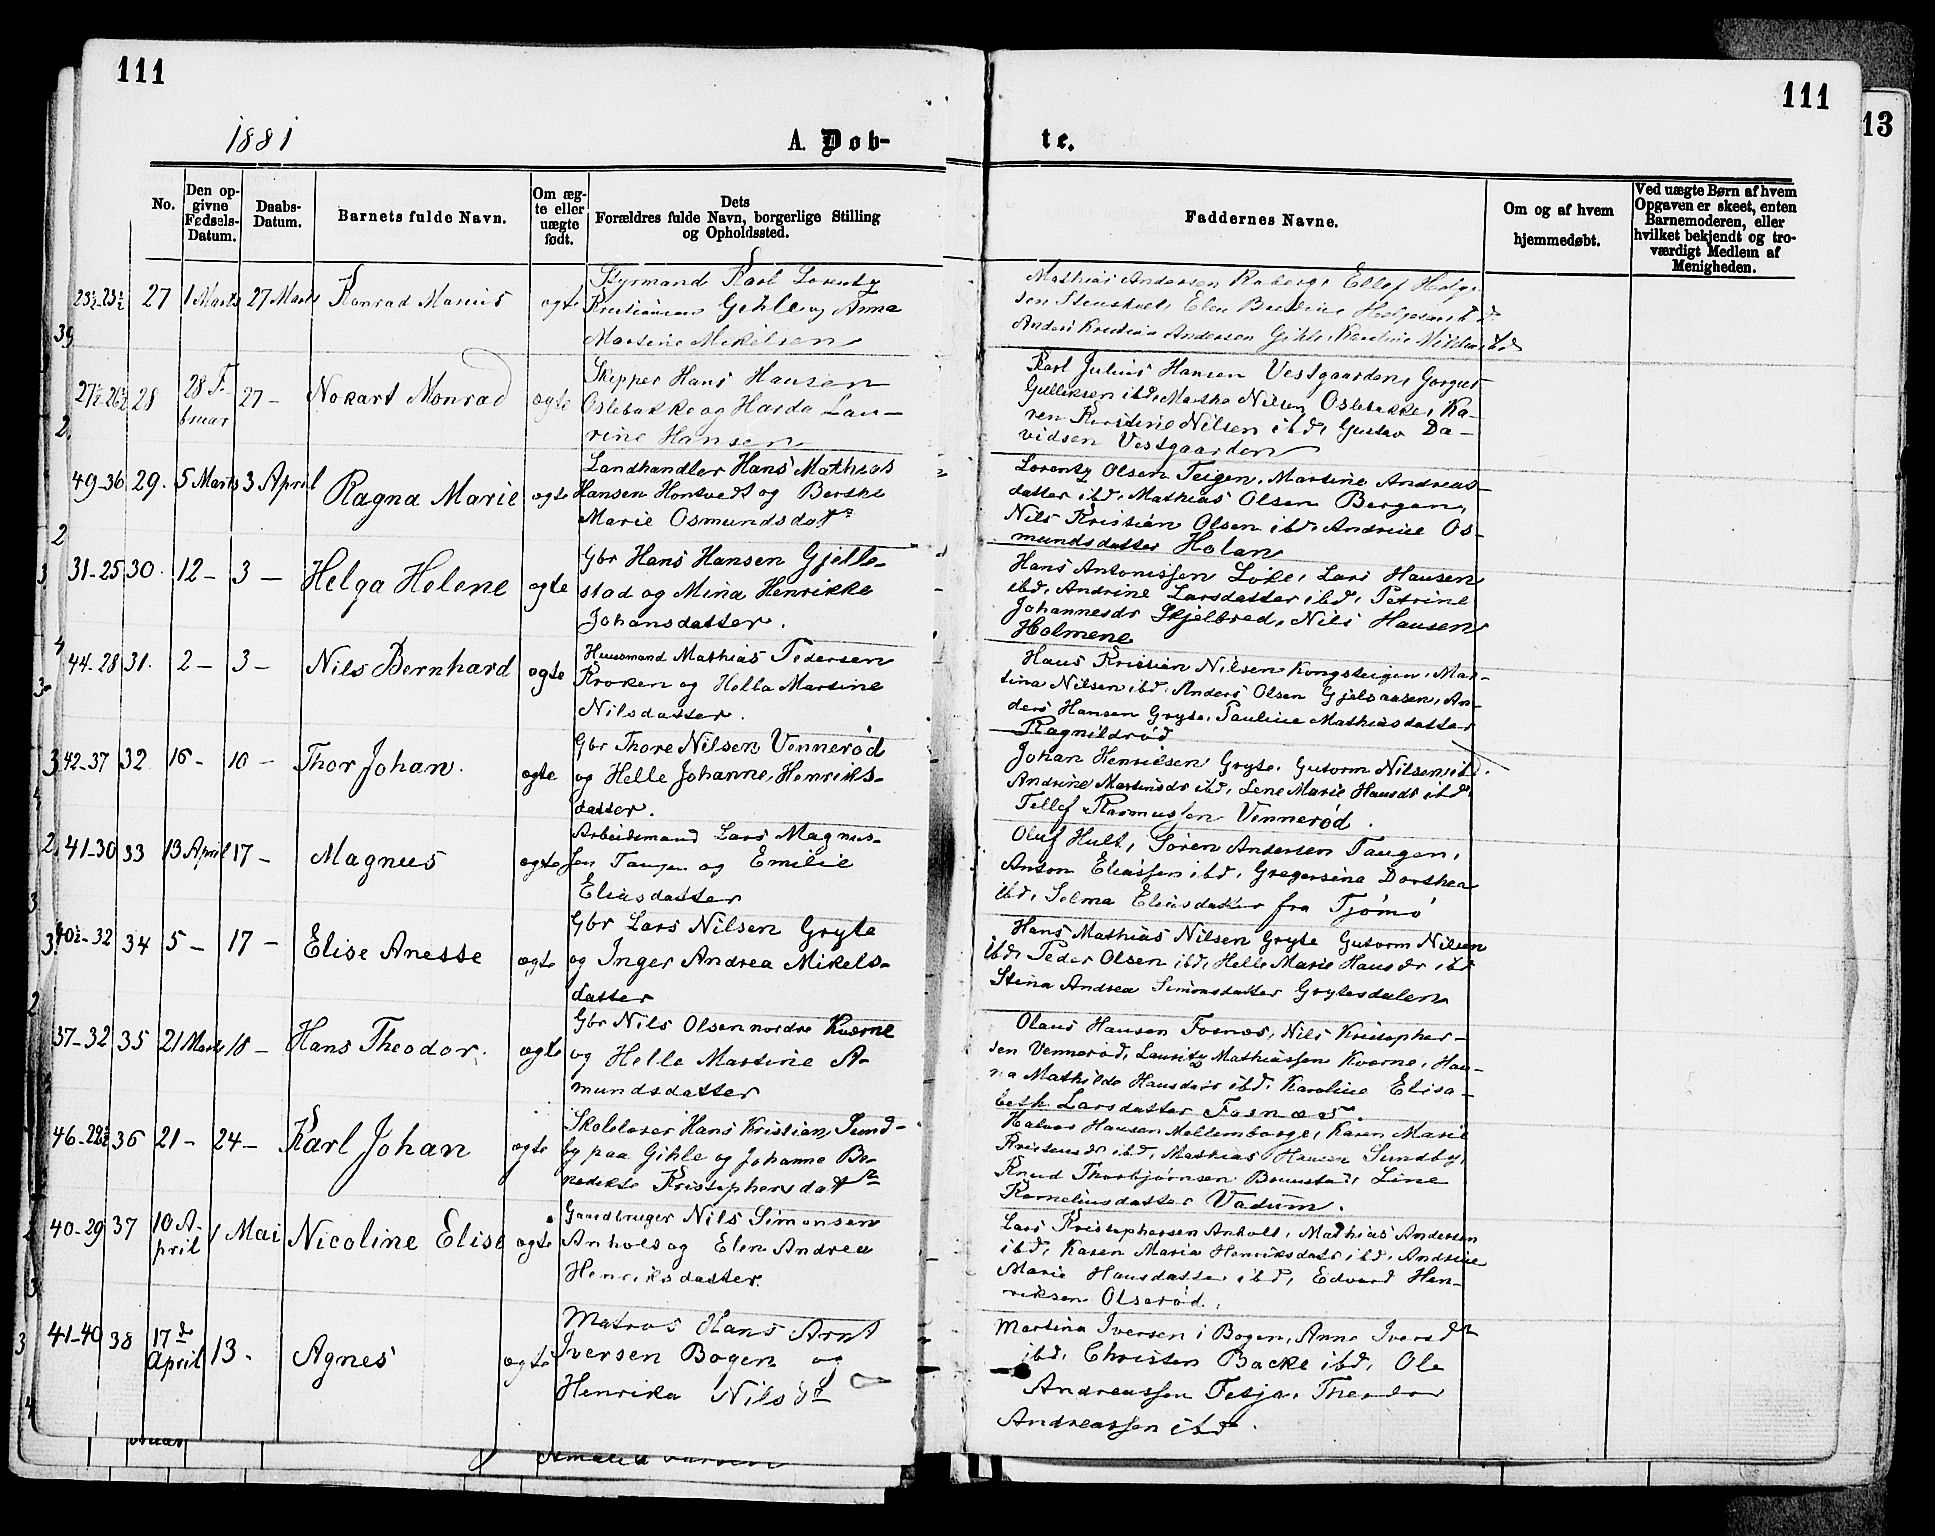 111
111
13
1881
A. Døb-
te.
No.
Den op-
givne
Fødsels-
Datum.
Daabs-
Datum.
Barnets fulde Navn.
Om æg-
te eller
uægte
født.
Dets
Forældres fulde Navn, borgerlige Stilling
og Opholdssted.
Faddernes Navne.
Om og af hvem
hjemmedøbt.
Ved uægte Børn af hvem
Opgaven er skeet, enten
Barnemoderen, eller
hvilket bekjendt og tro-
værdigt Medlem af
Menigheden.
27 1 Marts 27 Marts Konrad Marius ægte
Styrmand Karl Lorentz
Kristiansen Gihle og Anna
Martine Mikelsen
Mathias Andersen Raberg, Ellef Helge-
sen Stenskvet, Elen Helgesen ibd.
Anders Kristian Andersen Gihle, Karoline ibd
27½-26½ 28 28 F-
bruar 27 - Nokart Monrad ægte
Skipper Hans Hansen
Oslebakke og Harda Lau-
rine Hansen
Karl Julius Hansen Vestgaarden, Gorgus
Gulliksen ibd, Martha Nilsen Oslebakke, Ka-
ren Kristine Nilsen ibd, Gustav Da-
vidsen Vestgaarden
49-36 29. 5 Marts 3 April Ragna Marie ægte
Landhandler Hans Mathias
Hansen Hontvedt og Berthe
Marie Osmundsdatr
Lorentz Olsen Teigen, Martine Andreas-
datter ibd, Mathias Olsen Bergan,
Nils Kristian Olsen ibd, Andrine Os-
mundsdatter Holan
31-25 30. 12 - 3 - Helga Helene ægte
Gbr Hans Hansen Gjelle-
stad og Mina Henrikke
Johansdatter.
Hans Antonissen Løke, Lars Hansen
ibd, Andrine Larsdatter ibd, Petrine
Johannesdr Skjelbred, Nils Hansen
Holmene
44-28 31. 2 - 3 - Nils Bernhard ægte
Huusmand Mathias Pedersen
Kroken og Hella Martine
Nilsdatter.
Hans Kristian Nilsen Kongsteigen, Mar-
tina Nilsen ibd, Anders Olsen Gjelsaasen, An-
ders Hansen Gryte, Pauline Mathiasdatter
Ragnildrød
42-37 32 16 - 10 - Thor Johan. ægte
Gbr Thore Nilsen Vennerød
og Helle Johanne Henriks-
datter.
Johan Henriksen Gryte, Gutorm Nilsen ibd.
Andrine Martinsdr ibd, Lene Marie Hansdr ibd,
Tellef Rasmussen Vennerød.
41-30 33 13 April 17 - Magnus ægte
Arbeidsmand Lars Magnus-
sen Tangen og Emilie
Eliasdatter
Oluf Hult, Søren Andersen Tangen,
Anton Eliassen ibd, Gregersine Dorthea
ibd, Selma Eliasdatter fra Tjømø
40½-32 34 5 - 17 - Elise Anesse ægte
Gbr Lars Nilsen Gryte
og Inger Andrea Mikels-
datter
Hans Mathias Nilsen Gryte Gutorm Nilsen
ibd, Peder Olsen ibd, Helle Marie Hansdr ibd
Stina Andrea Simonsdatter Grytesdalen
37-32 35 21 Marts 18 - Hans Theodor. ægte
Gbr Nils Olsen nordre Kværne
og Helle Martine A-
mundsdatter
Olaus Hansen Fosnæs, Nils Kristopher-
sen Vennerød, Lauritz Mathiassen Kværne, Han-
na Mathilde Hansdatr ibd, Karoline Elisa-
beth Larsdatter Fosnæs.
46-22½ 36 21 - 24 - Karl Johan ægte
Skolelærer Hans Kristian Sund-
by paa Gihle og Johanne Be-
nedikte Kristophersdatr
Halvor Hansen Mellemborge, Karen Marie
ibd, Mathias Hansen Sundby,
Knud Thorbjørnsen Line
Kornelius datter Vadum.
40-29 37 10 A-
pril 1 Mai Nicoline Elise ægte
Gaardbruger Nils Simonsen
Anholt og Elen Andrea
Henriksdatter.
Lars Kristophersen Anholt, Mathias Andersen
ibd, Karen Maria Henriksdatr ibd, Andrine
Marie Hansdatter ibd, Edvard Hen-
riksen Olserød.
41-40 38 17de
April 13. Agnes ægte
Matros Hans Arnt
Iversen Bogen og
Henrika Nilsdtr
Martina Iversen i Bogen, Anne Iversdtr
ibd, Christen Backe ibd, Ole
Andreassen Teija, Theodor
Andreassen ibd.
bruar
Amalia Larsen